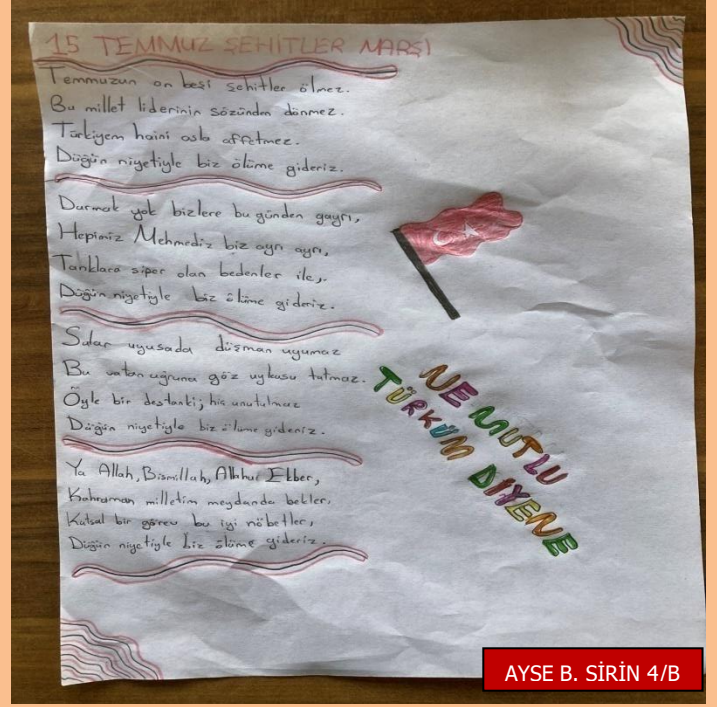 15 TEMMUZ ŞEHİTLER MARŞI
Temmuzun on beşi şehitler ölmez.
Bu millet liderinin sözünden dönmez.
Türkiyem haini asla affetmez.
Düğün niyetiyle biz ölüme gideriz.
Durmak yok bizlere bu günden gayrı,
Hepimiz Mehmediz biz ayrı ayrı,
Tanklara siper olan bedenler ile,
Düğün niyetiyle biz ölüme gideriz.
Sular uyusada düşman uyumaz
Bu vatan uğruna göz uykusu tutmaz.
Öyle bir destanki, hiç unutulmaz
Düğün niyetiyle biz ölüme gideriz.
Ya Allah, Bismillah, Allahu Ekber,
Kahraman milletim meydanda bekler,
Kutsal bir görev bu iyi nöbetler,
Düğün niyetiyle biz ölüme gideriz.
NE MUTLU
TÜRKÜM DİYENE
AYSE B. SİRİN 4/B